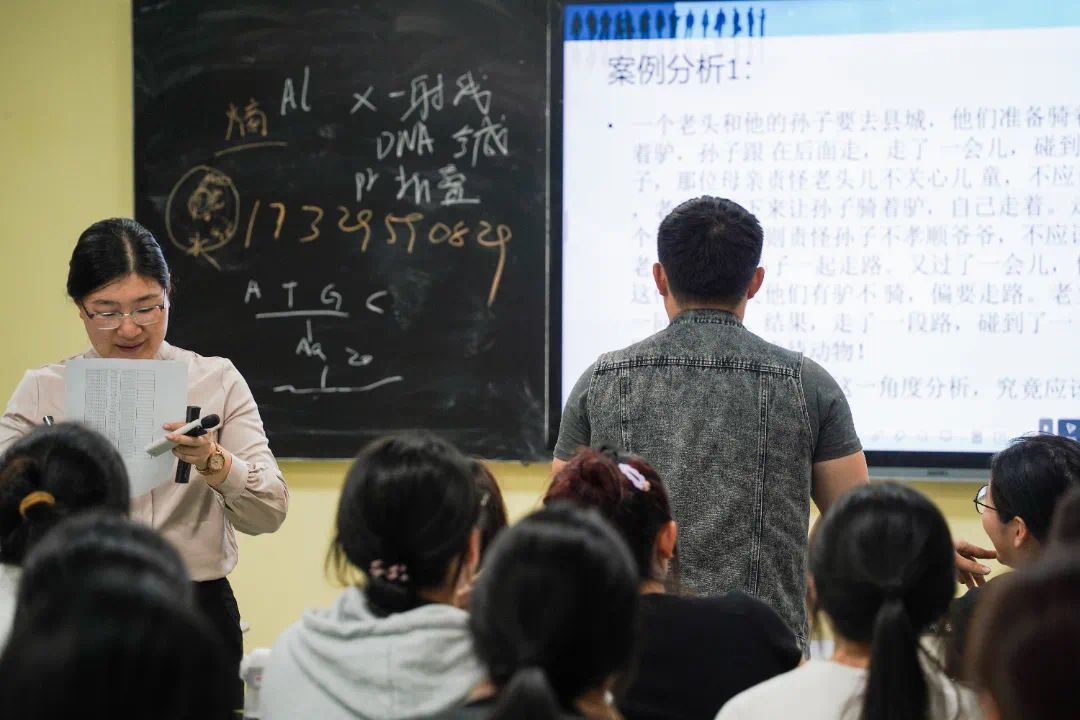 Al x-射线
熵
DNA
pr 折叠
17329590829
A T G C
案例分析1：
一个老头和他的孙子要去县城，他们准备骑着
着驴，孙子跟在后面走，走了一会儿，碰到
子，那位母亲责怪老头儿不关心儿童，不应
下来让孙子骑着驴，自己走着。
个 则责怪孙子不孝顺爷爷，不应该
老 子一起走路。又过了一会儿，
这 他们有驴不骑，偏要走路。老
一 结果，走了一段路，碰到了一
待动物！
这一角度分析，究竟应该